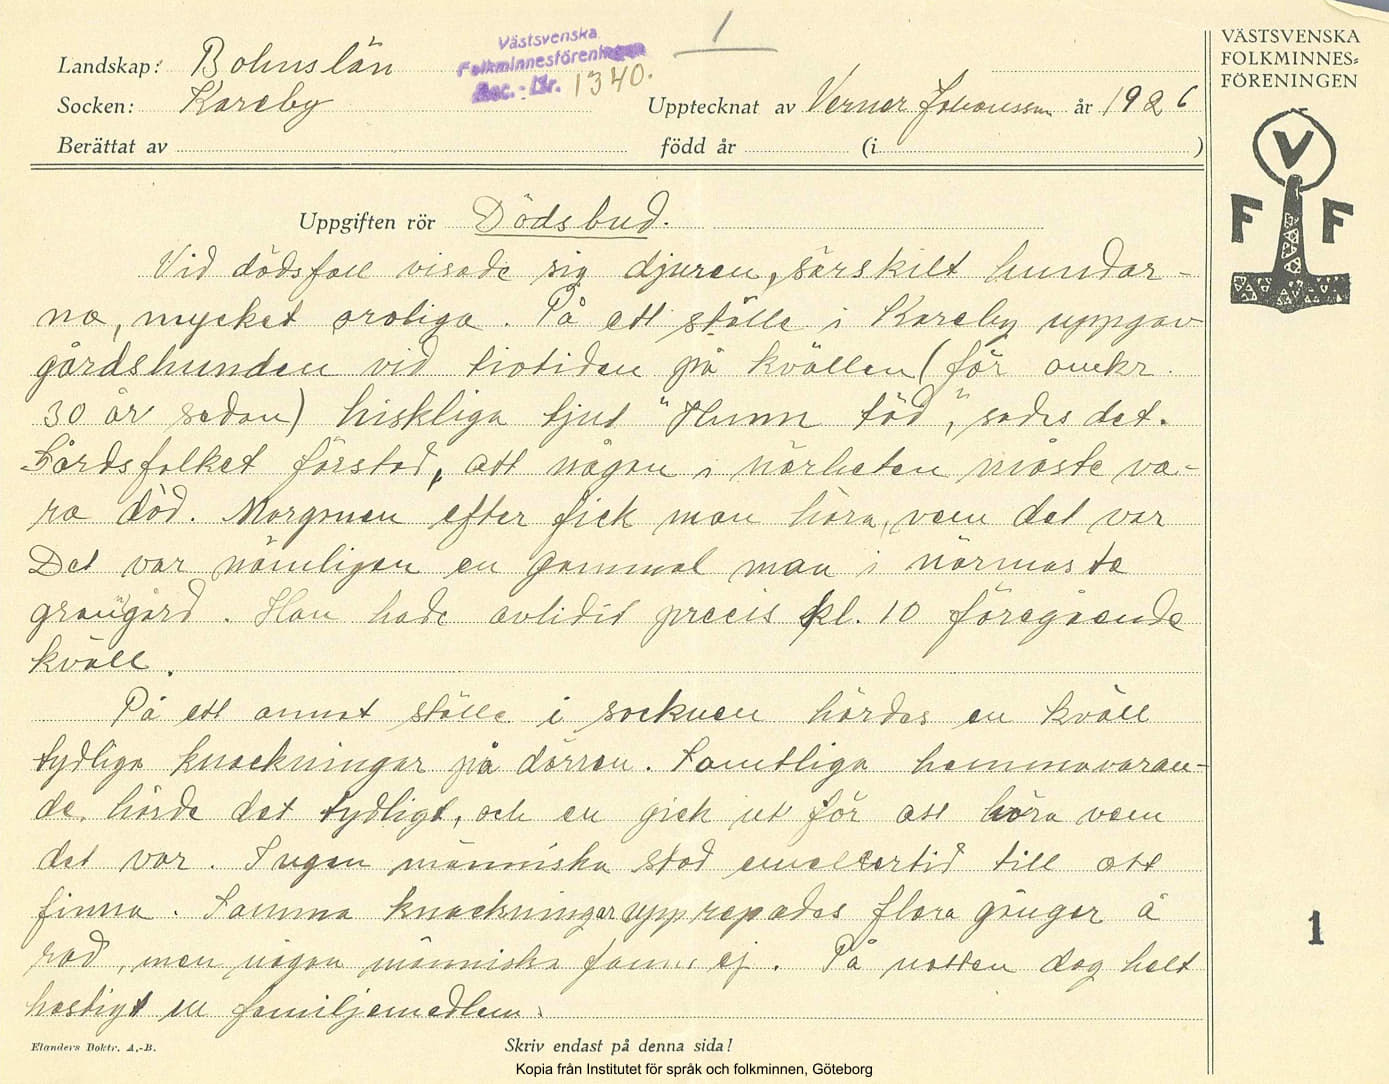 1
Västsvenska
Folkminnesföreningen
Acc.-Nr. 1340.
VÄSTSVENSKA
FOLKMINNES=
FÖRENINGEN
V
F F
Landskap: Bohuslän
Socken: Kareby
Upptecknat av Verner Johansson år 1926
Berättat av född år (i )
Uppgiften rör Dödsbud.
Vid dödsfall visade sig djuren, särskilt hundar-
na, mycket oroliga. På ett ställe i Kareby uppgav
gårdshunden vid tiotiden på kvällen (för omkr.
30 år sedan) hiskliga tjut "Hunn töd", sades det.
Gårdsfolket förstod, att någon i närheten måste va-
ra död. Morgonen efter fick man höra, vem det var
Det var nämligen en gammal man i närmaste
granngård. Han hade avlidit precis kl. 10 föregående
kväll.
På ett annat ställe i socknen hördes en kväll
tydliga knackningar på dörren. Samtliga hemmavaran-
de hörde det tydligt, och en gick ut för att höra vem
det var. Ingen människa stod emellertid till att
finna. Samma knackningar upprepades flera gånger å
rad, men någon människa fanns ej. På natten dog helt
hastigt en familjemedlem.
1
Elanders Boktr. A.-B.
Skriv endast på denna sida!
Kopia från Institutet för språk och folkminnen, Göteborg